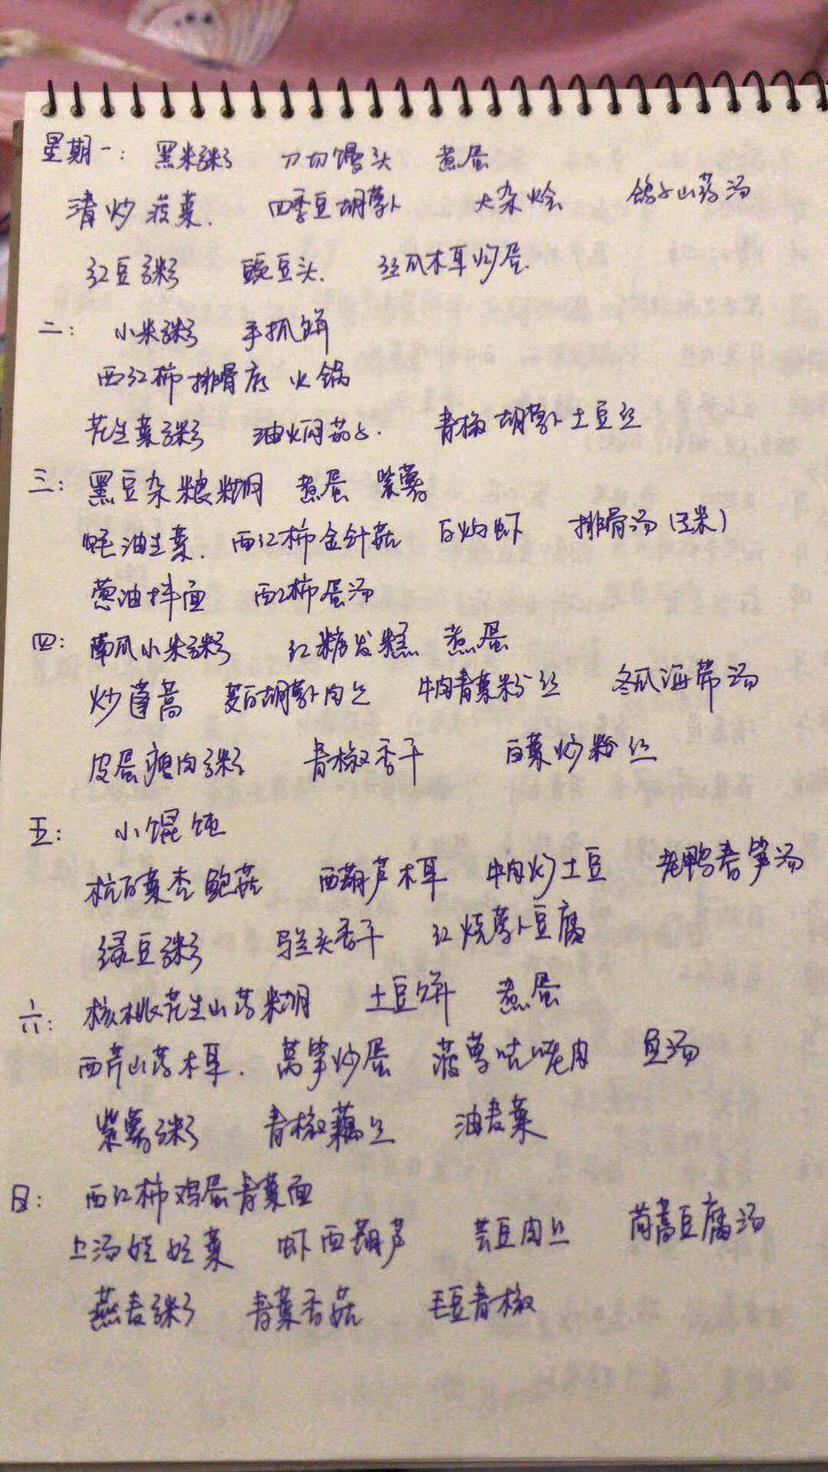 星期一: 黑米粥 刀切馒头 煮蛋
清炒菠菜. 四季豆胡萝卜 大杂烩 鸽子山药汤
红豆粥 豌豆头. 丝瓜木耳炒蛋.
二: 小米粥 手抓饼
西红柿排骨底 火锅
花生菜粥 油焖茄子. 青椒胡萝卜土豆丝
三: 黑豆杂粮糊 煮蛋 紫薯
蚝油生菜. 西红柿金针菇 白灼虾 排骨汤(玉米)
葱油拌面 西红柿蛋汤
四: 南瓜小米粥 红糖发糕 煮蛋
炒蓬蒿 茭白胡萝卜肉丝 牛肉青菜粉丝 冬瓜海带汤
皮蛋瘦肉粥 青椒香干 白菜炒粉丝
五: 小馄饨
杭白菜杏鲍菇 西葫芦木耳 牛肉炒土豆 老鸭春笋汤
绿豆粥 马兰头香干 红烧萝卜豆腐
六: 核桃花生山药糊 土豆饼 煮蛋
西芹山药木耳. 莴笋炒蛋 菠萝咕咾肉 鱼汤
紫薯粥 青椒藕丝 油麦菜
日: 西红柿鸡蛋青菜面
上汤娃娃菜 虾西葫芦 芸豆肉丝 茼蒿豆腐汤
燕麦粥 青菜香菇 毛豆青椒